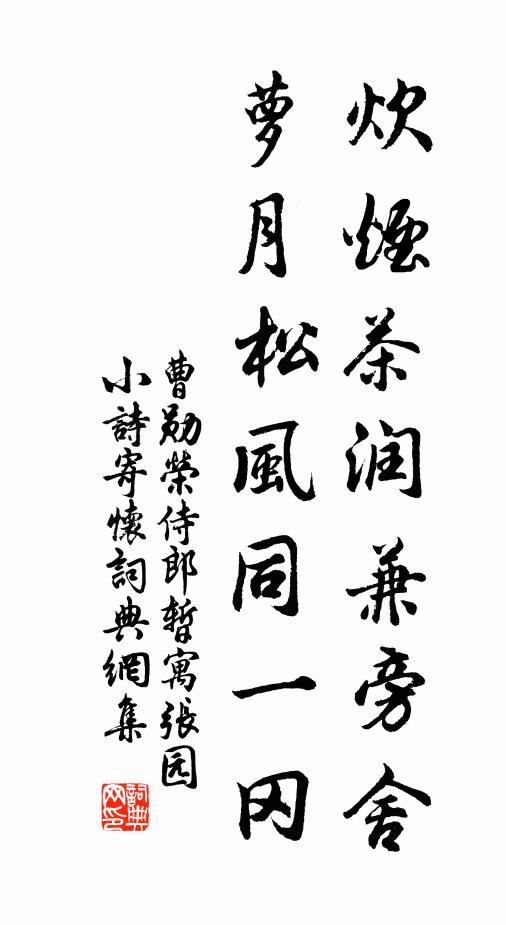 炊煙茶润兼旁舍
萝月松風同一冈
曹勛榮侍郎暫寓張园
小詩寄懷詞典網集
詞典
网印